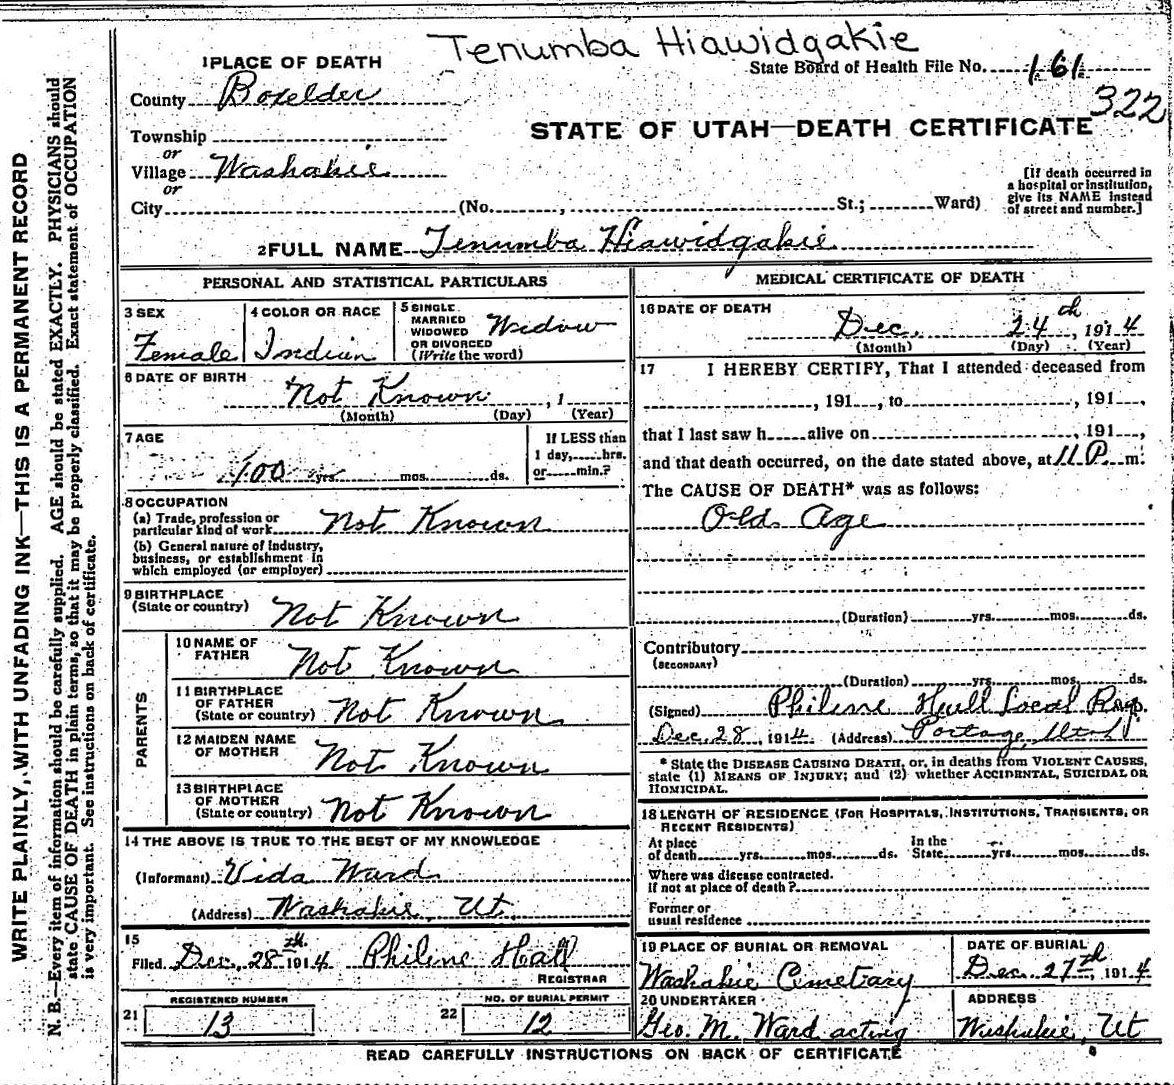 Tenumba Hiawidgakie
1 PLACE OF DEATH
State Board of Health File No. 161
322
County Boxelder
STATE OF UTAH—DEATH CERTIFICATE
Township
or
Village Washakie
or
City (No. , St.; Ward)
[If death occurred in
a hospital or institution,
give its NAME instead
of street and number.]
2 FULL NAME Tenumba Hiawidgakie
PERSONAL AND STATISTICAL PARTICULARS
3 SEX
Female
4 COLOR OR RACE
Indian
5 SINGLE
MARRIED
WIDOWED
OR DIVORCED
(Write the word)
Widow
6 DATE OF BIRTH
Not Known , 1
(Month) (Day) (Year)
7 AGE
100 yrs. mos. ds.
If LESS than
1 day, hrs.
or min.?
8 OCCUPATION
(a) Trade, profession or
particular kind of work Not Known
(b) General nature of industry,
business, or establishment in
which employed (or employer)
9 BIRTHPLACE
(State or country) Not Known
PARENTS
10 NAME OF
FATHER Not Known
11 BIRTHPLACE
OF FATHER
(State or country) Not Known
12 MAIDEN NAME
OF MOTHER Not Known
13 BIRTHPLACE
OF MOTHER
(State or country) Not Known
14 THE ABOVE IS TRUE TO THE BEST OF MY KNOWLEDGE
(Informant) Vida Ward
(Address) Washakie, Ut.
15
Filed Dec. 28th 1914 Philene Hall
REGISTRAR
REGISTERED NUMBER
21 13
NO. OF BURIAL PERMIT
22 12
MEDICAL CERTIFICATE OF DEATH
16 DATE OF DEATH
Dec. 24th, 1914
(Month) (Day) (Year)
17 I HEREBY CERTIFY, That I attended deceased from
, 191 , to , 191 ,
that I last saw h alive on , 191 ,
and that death occurred, on the date stated above, at 11 P. m.
The CAUSE OF DEATH* was as follows:
Old Age
(Duration) yrs. mos. ds.
Contributory
(SECONDARY)
(Duration) yrs. mos. ds.
(Signed) Philene Hall Local Reg.
Dec. 28, 1914 (Address) Portage, Utah
* State the DISEASE CAUSING DEATH, or, in deaths from VIOLENT CAUSES,
state (1) MEANS OF INJURY; and (2) whether ACCIDENTAL, SUICIDAL OR
HOMICIDAL.
18 LENGTH OF RESIDENCE (FOR HOSPITALS, INSTITUTIONS, TRANSIENTS, OR
RECENT RESIDENTS)
At place
of death yrs. mos. ds.
In the
State yrs. mos. ds.
Where was disease contracted.
If not at place of death?
Former or
usual residence
19 PLACE OF BURIAL OR REMOVAL
Washakie Cemetary
DATE OF BURIAL
Dec. 27th, 1914
20 UNDERTAKER
Geo. M. Ward acting
ADDRESS
Washakie, Ut
READ CAREFULLY INSTRUCTIONS ON BACK OF CERTIFICATE
WRITE PLAINLY, WITH UNFADING INK—THIS IS A PERMANENT RECORD
N. B.—Every item of information should be carefully supplied. AGE should be stated EXACTLY. PHYSICIANS should
state CAUSE OF DEATH in plain terms, so that it may be properly classified. Exact statement of OCCUPATION
is very important. See instructions on back of certificate.